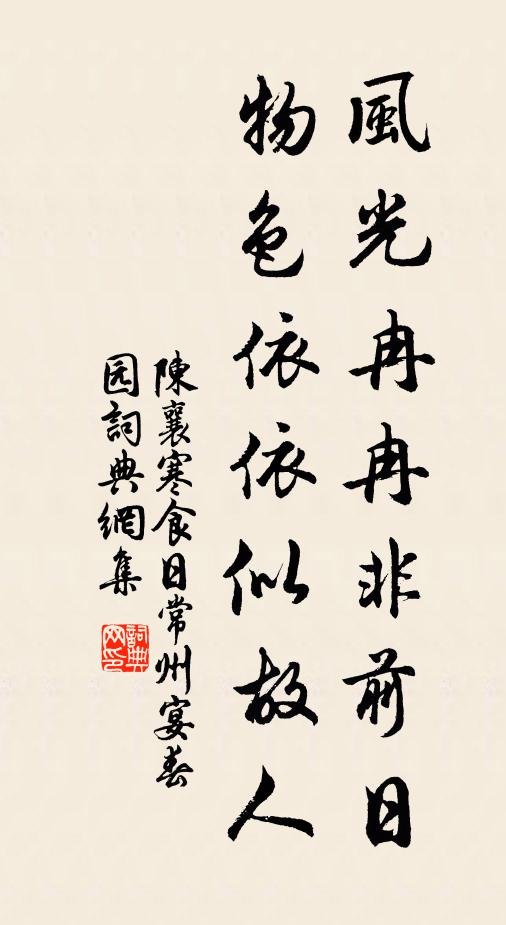 風光冉冉非前日
物色依依似故人
陳襄寒食日常州宴春
园詞典網集
詞典
网印